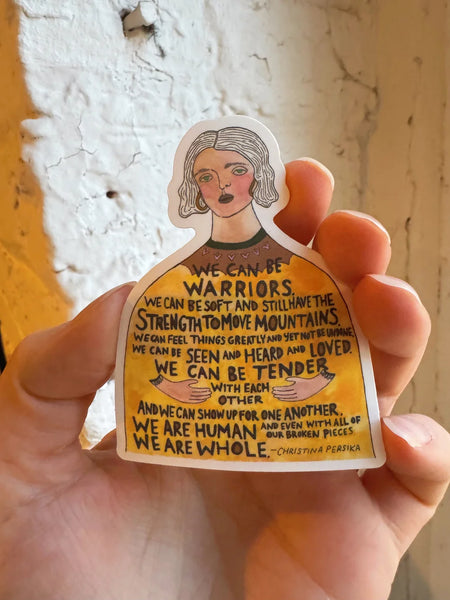 WE CAN BE
WARRIORS.
WE CAN BE SOFT AND STILL HAVE THE
STRENGTH TO MOVE MOUNTAINS.
WE CAN FEEL THINGS GREATLY AND YET NOT BE UNDONE.
WE CAN BE SEEN AND HEARD AND LOVED.
WE CAN BE TENDER
WITH EACH
OTHER
AND WE CAN SHOW UP FOR ONE ANOTHER.
WE ARE HUMAN AND EVEN WITH ALL OF
OUR BROKEN PIECES
WE ARE WHOLE. -CHRISTINA PERSIKA